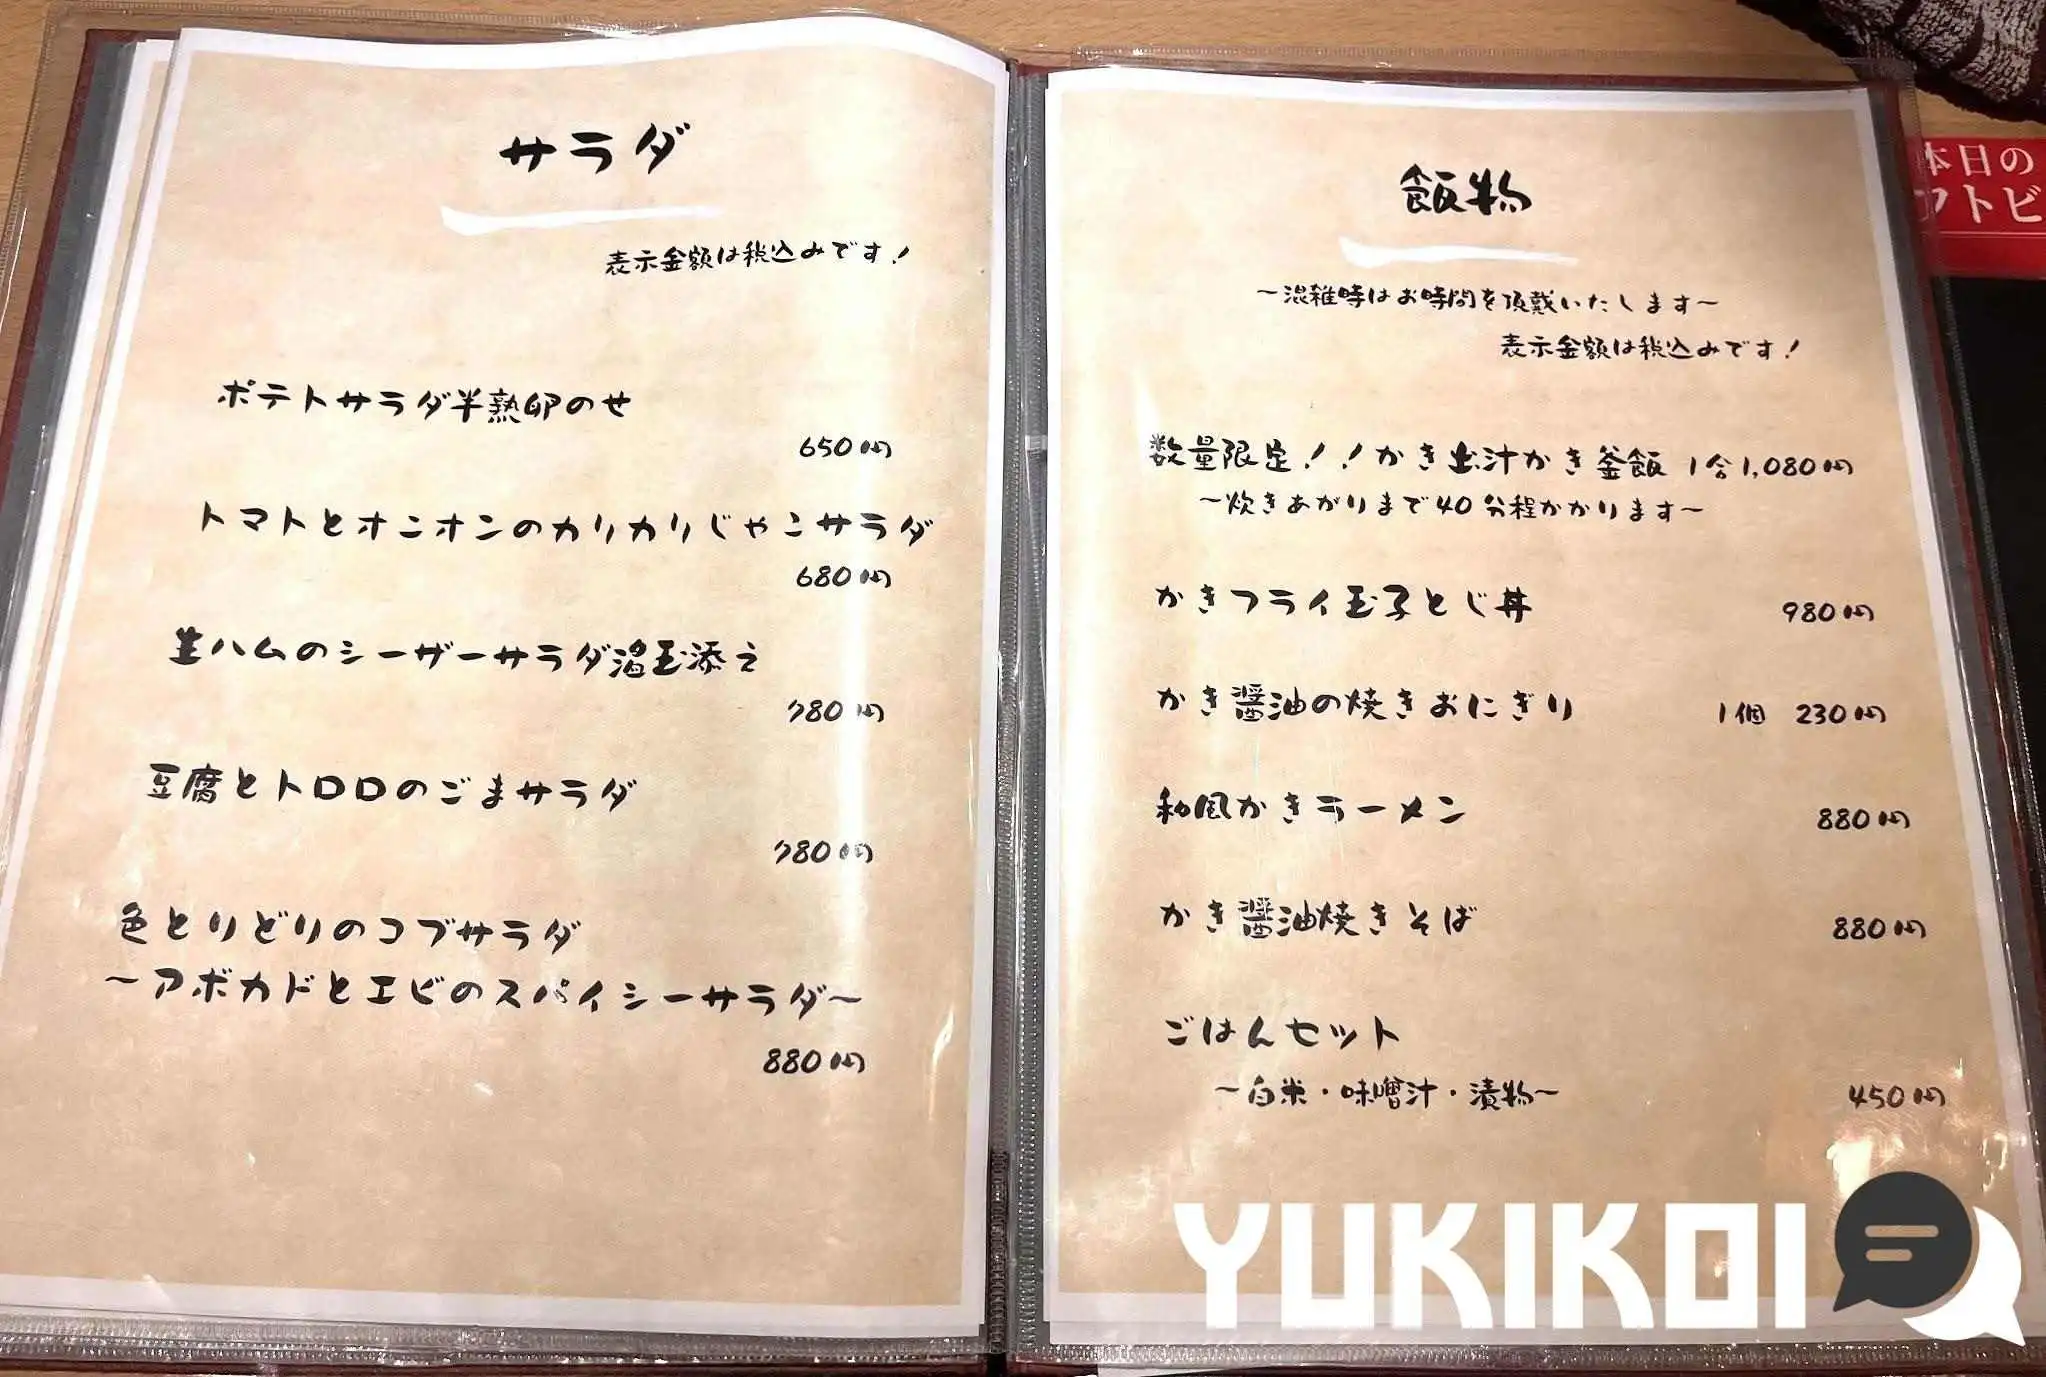 サラダ
表示金額は税込みです!
ポテトサラダ半熟卵のせ
650円
トマトとオニオンのカリカリじゃこサラダ
680円
生ハムのシーザーサラダ温玉添え
780円
豆腐とトロロのごまサラダ
780円
色とりどりのコブサラダ
~アボカドとエビのスパイシーサラダ~
880円
飯物
~混雑時はお時間を頂戴いたします~
表示金額は税込みです!
数量限定!!かき出汁かき釜飯 1合1,080円
~炊きあがりまで40分程かかります~
かきフライ玉子とじ丼 980円
かき醤油の焼きおにぎり 1個 230円
和風かきラーメン 880円
かき醤油焼きそば 880円
ごはんセット
~白米・味噌汁・漬物~ 450円
本日の
フトビ
YUKIKOI